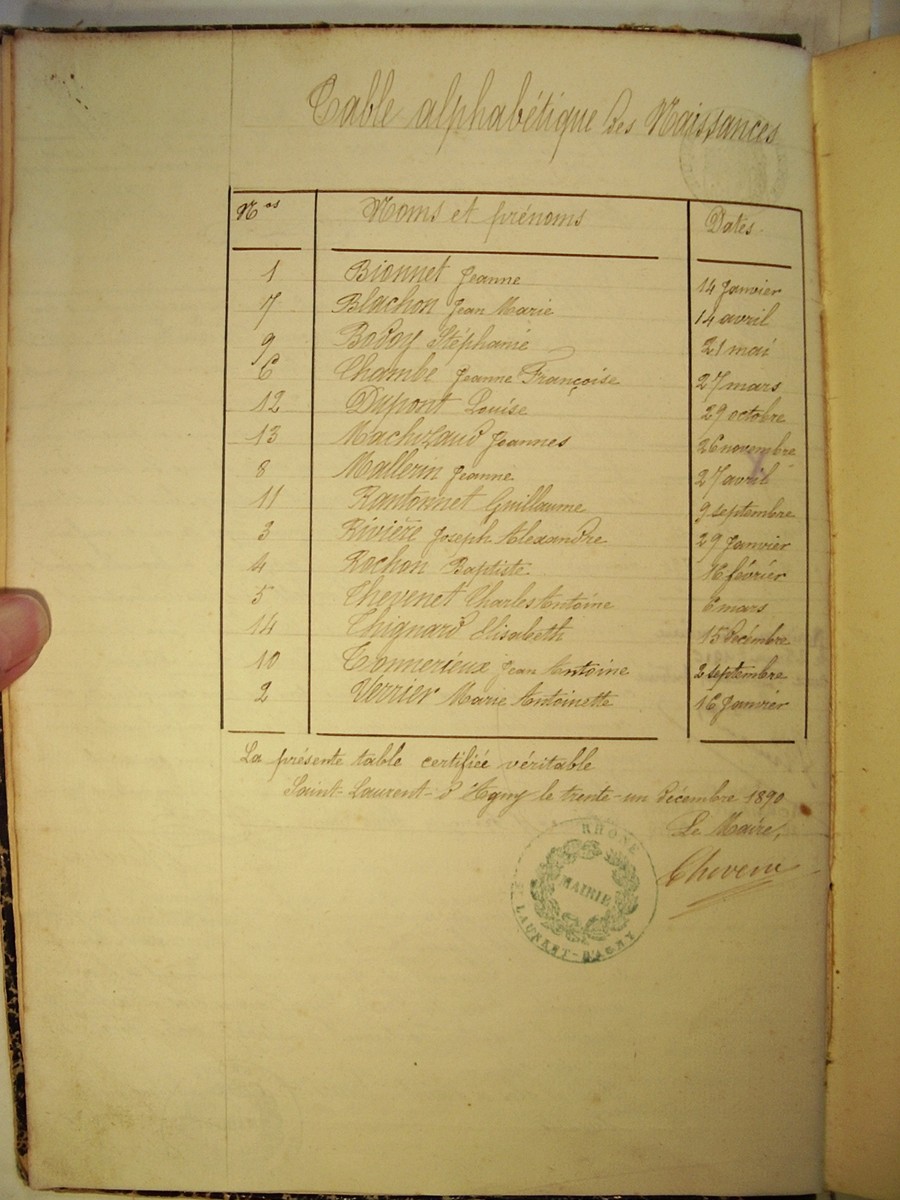 Table alphabétique des Naissances
Nos Noms et prénoms Dates
1 Bionnet Jeanne 14 Janvier
7 Blachon Jean Marie 14 avril
9 Bodoy Stéphanie 21 mai
6 Chambe Jeanne Françoise 27 mars
12 Dupont Louise 29 octobre
13 Jeannes 26 novembre
8 Mallerin Jeanne 27 avril
11 Rantonnet Guillaume 9 septembre
3 Rivière Joseph Alexandre 29 Janvier
4 Rochon Baptiste 16 février
5 Thevenet Charles Antoine 6 mars
14 Thignard Elisabeth 15 Décembre
10 Tonnerieux Jean Antoine 2 septembre
2 Verrier Marie Antoinette 16 Janvier
La présente table certifiée véritable
Saint-Laurent-d'Agny le trente-un décembre 1890
Le Maire,
RHÔNE
MAIRIE
ST LAURENT-D'AGNY